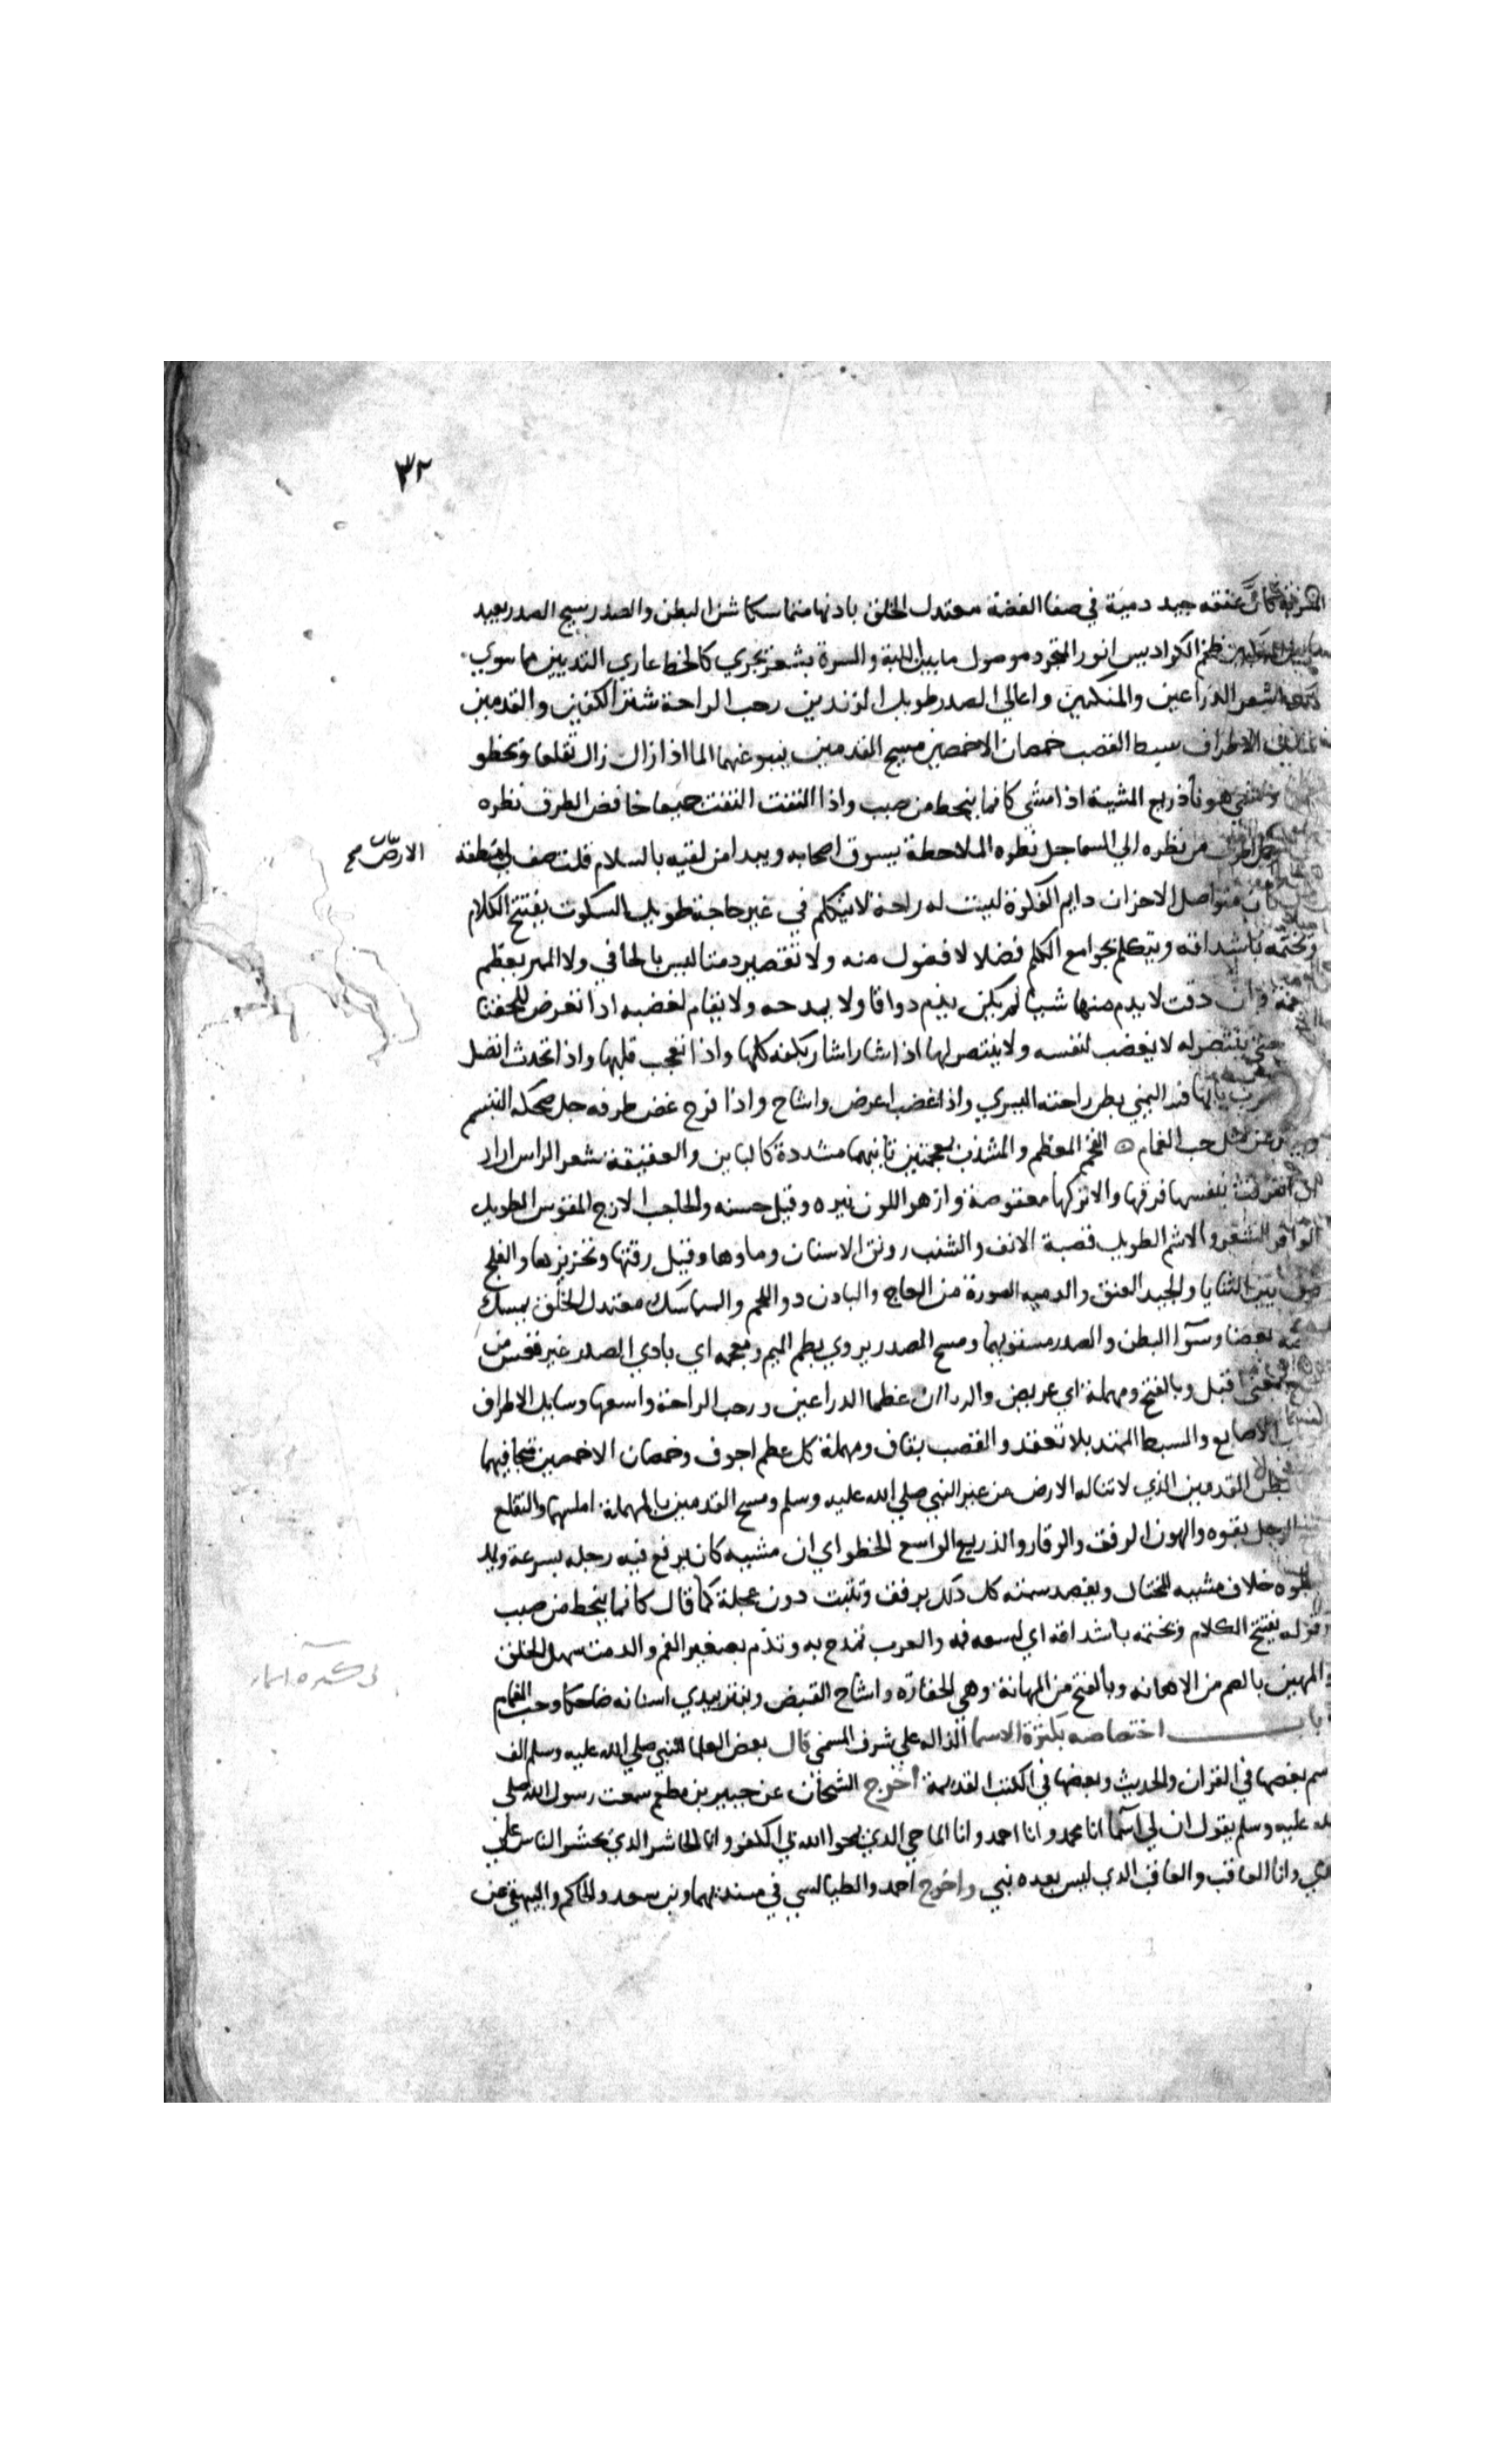 ٣٢
المسربة كان عنقه جيد دمية في صفا الفضة معتدل الخلق بادنا متماسكا شثن البطن والصدر سيح الصدر بعيد
ما بين المنكبين ضخم الكراديس انور المتجرد موصول ما بين اللبة والسرة بشعر يجري كالخط عاري الثديين مما سوي
ذلك اشعر الذراعين والمنكبين واعالي الصدر طويل الزندين رحب الراحة شثن الكفين والقدمين
الاطراف سبط القصب خمصان الاخمصين مسيح القدمين ينبو عنهما الما اذا زال زال تقلعا ويخطو
هونا ذريع المشية اذا مشي كانما ينحط من صبب واذا التفت التفت جميعا خافض الطرف نظره
من نظره الي السما جل نظره الملاحظة يسوق اصحابه ويبدا من لقيه بالسلام قلت صف لي منطقه
الارض صح
متواصل الاحزان دايم الفكرة ليست له راحة لا يتكلم في غير حاجة طويل السكوت يفتتح الكلام
ويختمه باشداقه ويتكلم بجوامع الكلم فضلا لا فضول منه ولا تقصير دمثا ليس بالجافي ولا المهين يعظم
وان دقت لا يذم منها شيا لم يكن يذم ذواقا ولا يمدحه ولا يقام لغضبه اذا تعرض للحق
حتي ينتصر له لا يغضب لنفسه ولا ينتصر لها اذا اشار اشار بكفه كلها واذا تعجب قلبها واذا تحدث اتصل
اليمني بطن راحته اليسري واذا غضب اعرض واشاح واذا فرح غض طرفه جل ضحكه التبسم
حب الغمام الفخم المعظم والمشذب بمعجمتين ثانيهما مشددة كالباين والعقيقة شعر الراس اراد
ان انفرقت بنفسها فرقها والا تركها معقوصة وازهر اللون نيره وقيل حسنه والحاجب الازج المقوس الطويل
الوافر الشعر والاشم الطويل قصبة الانف والشنب رونق الاسنان وماوها وقيل رقتها وتحزيزها والفلج
بين الثنايا والجيد العنق والدميه الصورة من العاج والبادن ذو اللحم والمتماسك معتدل الخلق يمسك
بعضا وسوا البطن والصدر مستويهما ومسح الصدر يروي بضم الميم ومعجمه اي بادي الصدر غير قعس من
اقبل وبالفتح ومهملة اي عريض والزندان عظما الذراعين ورحب الراحة واسعها وسايل الاطراف
الاصابع والسبط الممتد بلا تعقد والقصب بقاف ومهملة كل عظم اجوف وخمصان الاخمصين متجافيهما
بطن القدمين الذي لا تناله الارض من غير النبي صلي الله عليه وسلم ومسح القدمين بالمهملة املسهما والتقلع
الرجل بقوه والهون الرفق والوقار والذريع الواسع الخطو اي ان مشيه كان يرفع فيه رجله بسرعة ويمد
خلاف مشيه المختال ويقصد سمته كل ذلك برفق وتثبت دون عجلة كما قال كانما ينحط من صبب
وقوله يفتتح الكلام ويختمه باشداقه اي لسعه فمه والعرب تمدح به وتذم بصغير الفم والدمث سهل الخلق
والمهين بالضم من الاهانه وبالفتح من المهانة وهي الحقارة واشاح انقبض ويفتر يبدي اسنانه ضاحكا وحب الغمام
باب اختصاصه بكثرة الاسما الداله علي شرف المسمي قال بعض العلما للنبي صلي الله عليه وسلم الف
اسم بعضها في القران والحديث وبعضها في الكتب القديمة اخرج الشيخان عن جبير بن مطعم سمعت رسول الله صلي
الله عليه وسلم يقول ان لي اسما انا محمد وانا احمد وانا الماحي الذي يمحوا الله بي الكفر وانا الحاشر الذي يحشر الناس علي
قدمي وانا العاقب والعاقب الذي ليس بعده نبي واخرج احمد والطيالسي في مسنديهما وبن سعد والحاكم والبيهقي عن